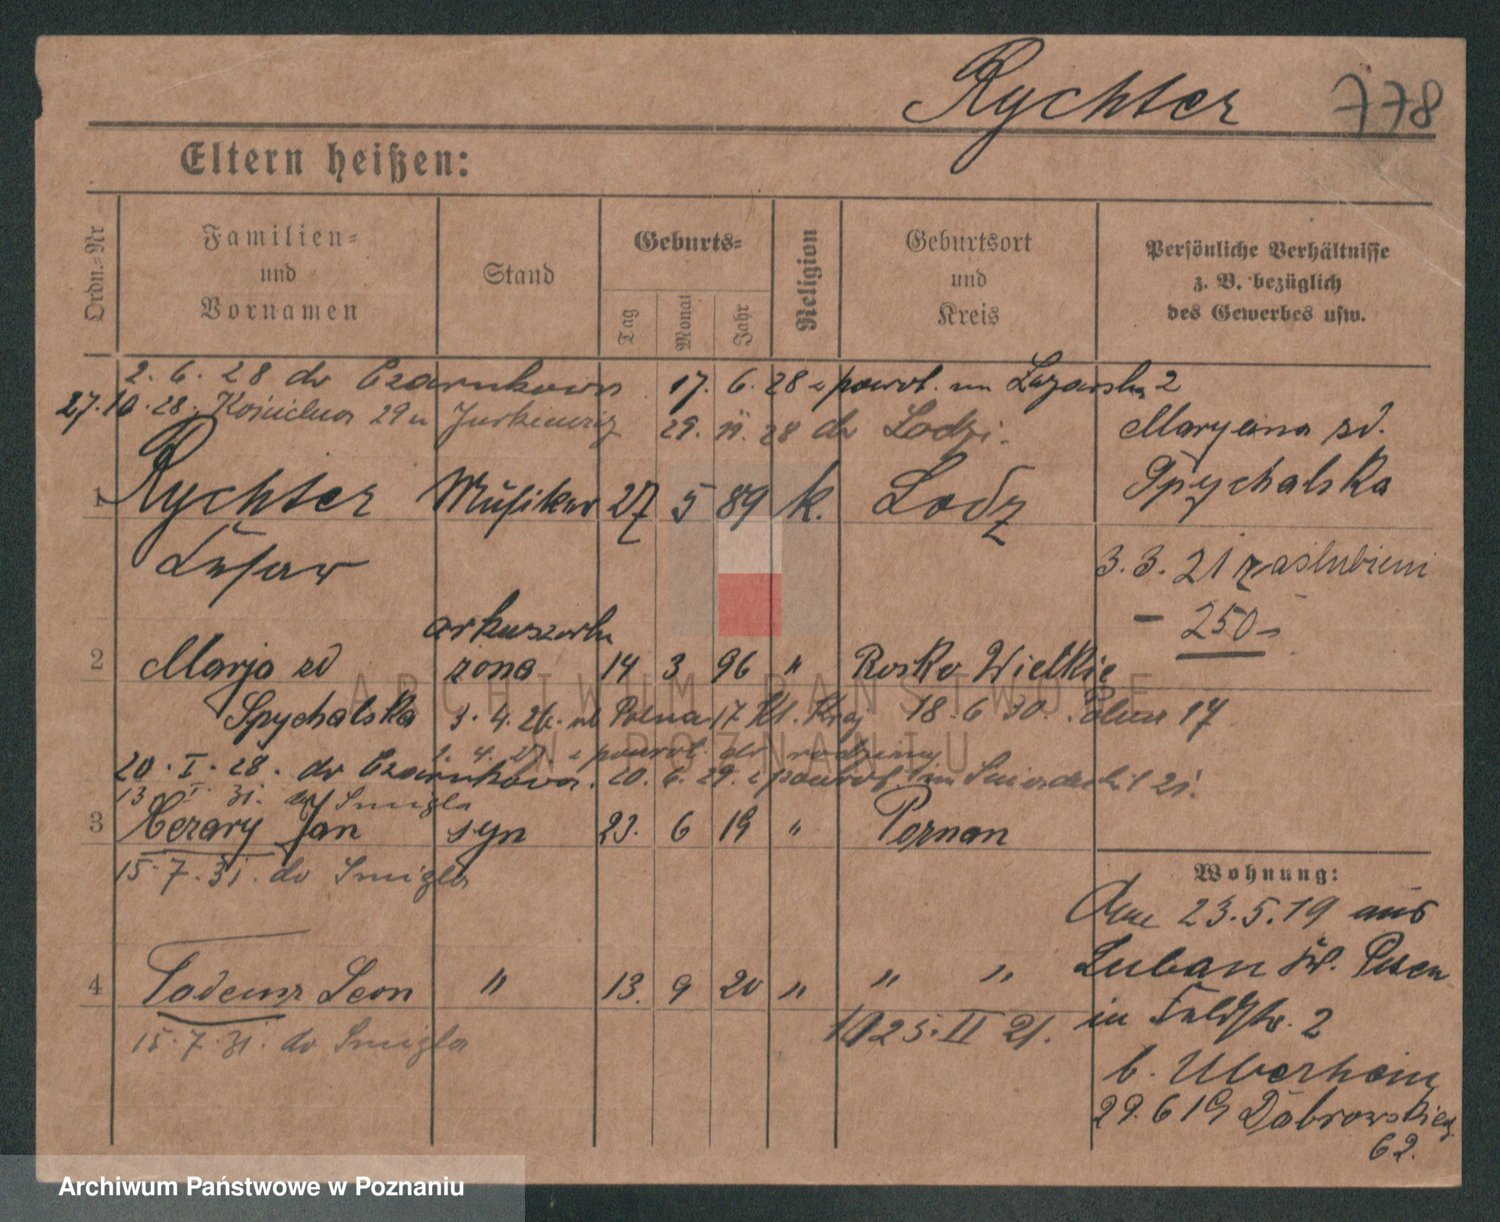 Rychter 778
Eltern heißen:
Ordn.-Nr
Familien-
und
Vornamen
Stand
Geburts-
Tag
Monat
Jahr
Religion
Geburtsort
und
Kreis
Persönliche Verhältnisse
z. B. bezüglich
des Gewerbes usw.
2. 6. 28 do Czarnkowa 17. 6. 28 z powrot. 2
27. 10. 28. 29 u 29. 11. 28 do Lodzi.
Maryana zd.
Spychalska
1 Rychter Musiker 27 5 89 k. Lodz
Cesar
3. 3. 21 zaslubieni
– 250 –
2 Marja zd żona 14 3 96 " Rosko Wielkie
Spychalska 3. 4. 26. Polna 17 18. 6. 30. 17
4. 27 z powrot. do rodziny
20. I. 28. do Czarnkowa. 20. 6. 29. z powrot 21.
13 I 31. do Smigla
3 Cezary Jan syn 23. 6 19 " Poznan
15. 7. 31. do Smigla
4 Tadeusz Leon " 13. 9 20 " " "
15. 7. 31. do Smigla
25. II 21.
Wohnung:
23. 5. 19 aus
Luban Kr. Posen
in Feldstr. 2
b. Uberhein
29. 6 19 Dabrowskieg.
62.
ARCHIWUM PAŃSTWOWE
W POZNANIU
Archiwum Państwowe w Poznaniu